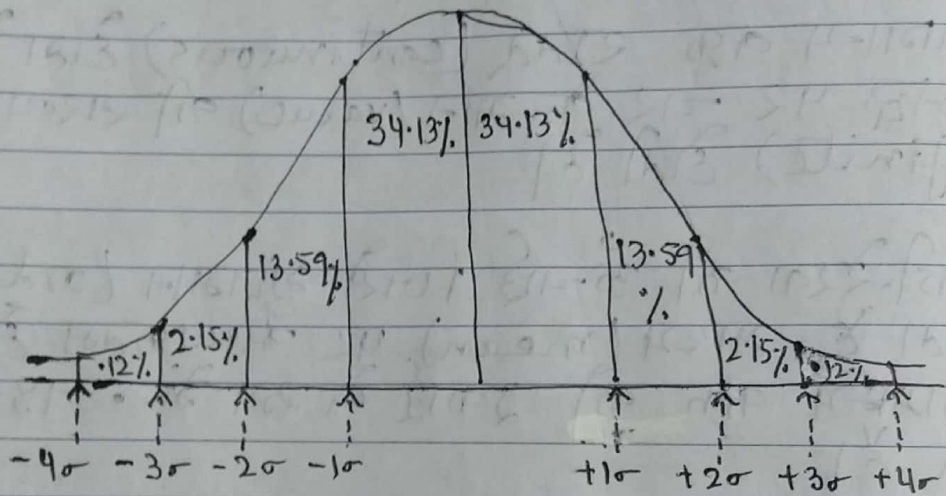 34.13% 34.13%
13.59% 13.59
%
.12% 2.15% 2.15% .12%
-4σ -3σ -2σ -1σ +1σ +2σ +3σ +4σ